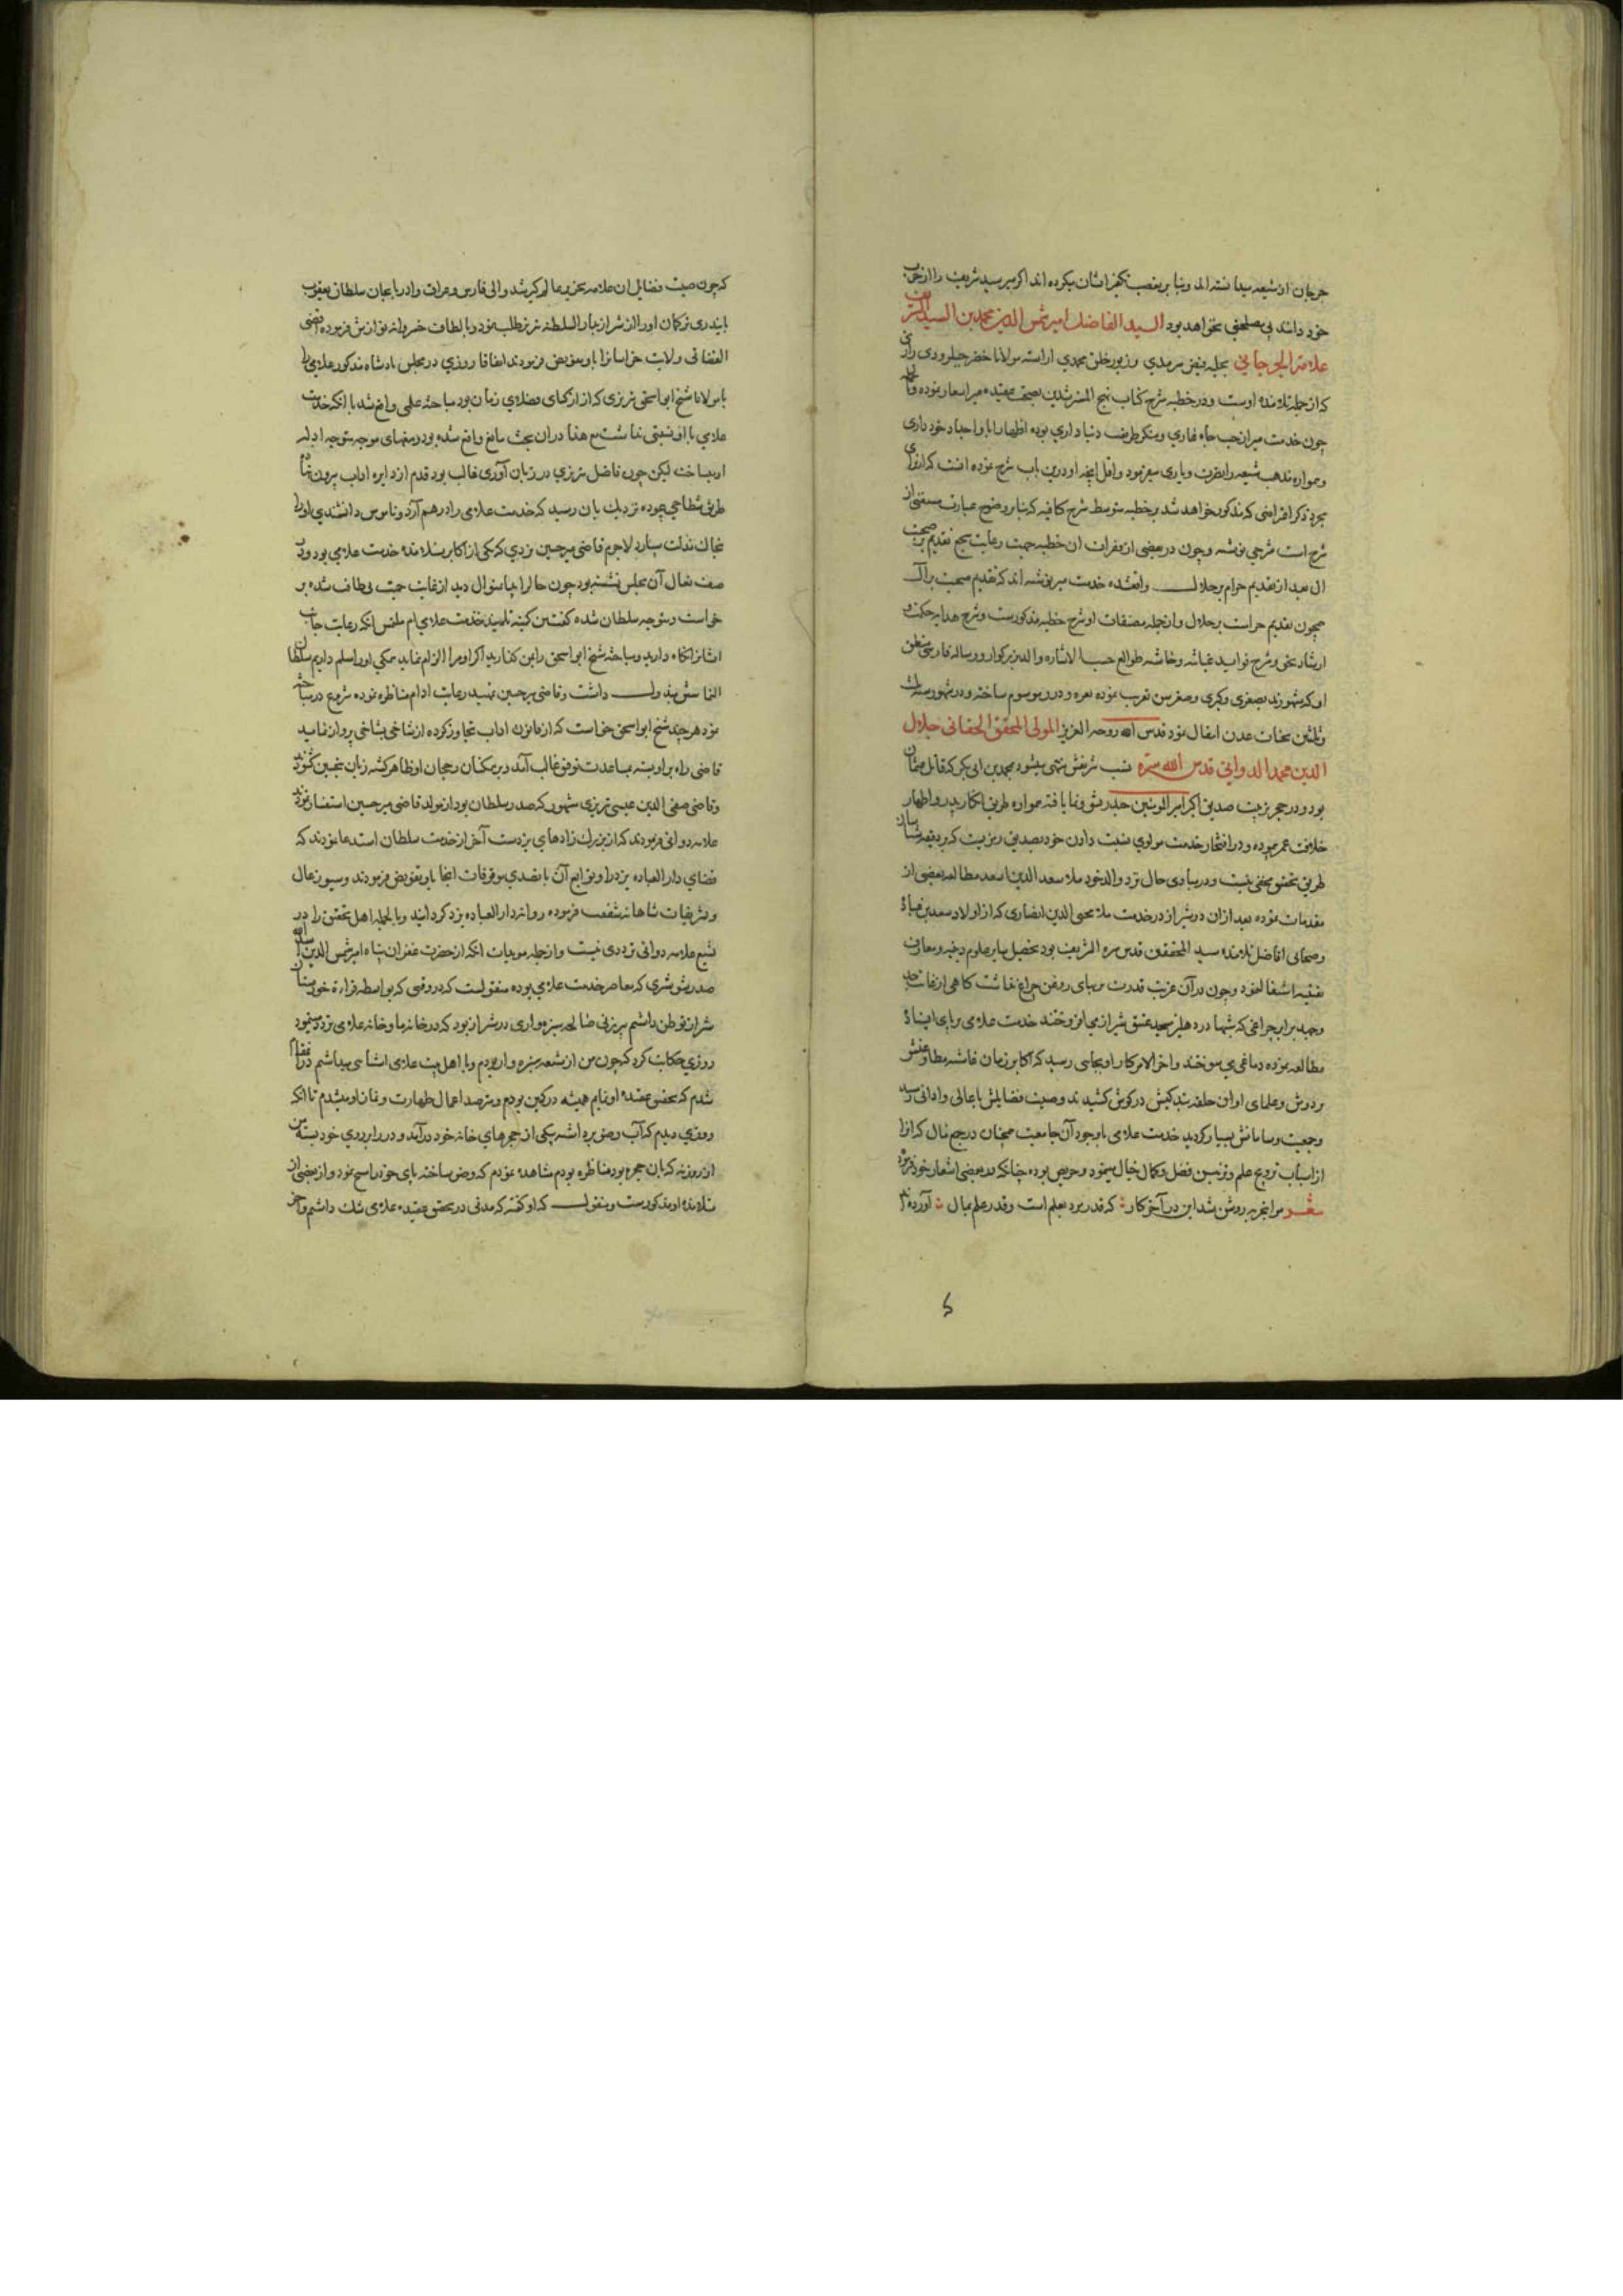 جرجان از شیعه میدانسته اند و بنا بر تعصب تکفیر ایشان میکرده اند اگر میر سید شریف را از
خود دانند بی مصلحتی نخواهد بود السید الفاضل امیر شمس الدین محمد بن السید الشریف
علامة الجرجانی بحلیه فیض سرمدی و زیور خلق محمدی اراسته مولانا خضر حبلرودی رازی
که از جمله تلامذه اوست و در خطبه شرح کتاب نهج المسترشدین بصحت عقیده میر اشعار نموده
چون خدمت میر از حب جاه عاری و منکر طریقت دنیا داری بوده اظهار ابا و اجداد خود داری
و همواره مذهب شیعه را بقرت و یاری میفرمود و اقل آنچه او درین باب شرح نموده انست که
بمجرد ذکر اعراضی که مذکور خواهد شد بر خطبه متوسط شرح کافیه که بنا بر وضوح عبارت مستغنی از
شرح است شرحی نوشته و چون در بعضی از فقرات ان خطبه جهت رعایت سجع تقدیم صحب بر
ال بعد از تقدیم حرام بر حلال واقعشده خدمت میر نوشته اند که تقدیم صحب بر آل
همچون تقدیم حرامست بر حلال و از جمله مصنفات او شرح خطبه مذکورست و شرح هدایه حکمت و
ارشاد نحو و شرح فواید غیاثیه و حاشیه طوالع حسب الاشاره والد بزرگوار و رساله فارسی منطق
او که مشهورند بصغری و کبری و صغر سن تعریب نموده بغره و دره موسوم ساخته و در شهور سنه
و ثلثین بجنات عدن انتقال نمود قدس الله روحه العزیز المولی المحقق الحقانی جلال
الدین محمد الدوانی قدس الله سره نسب شریفش منتهی میشود بمحمد بن ابی بکر که قاتل عثمان
بود و در حجر تربیت صدیق اکبر امیر المومنین حیدر نشو و نما یافته همواره طریق انکار پدر و اظهار
خلافت عمر پیموده و در افتخار خدمت مولوی بنسبت دادن خود بصدیق رمزیست که بر دقیقه شناسان
طریق تحقیق مخفی نیست و در مبادی حال نزد والد خود ملا سعد الدین اسعد مطالعه بعضی از
مقدمات نموده بعد ازان در شیراز در خدمت ملا محیی الدین انصاری که از اولاد سعد بن عباده
و صحابی افاضل تلامذه سید المحققین قدس سره الشریف بود تحصیل سایر علوم دینیه و معارف
یقینیه اشتغال نمود و چون در آن عزیب قدرت بر بهای روغن چراغ نداشت گاهی از غایت جد
و جهد برابر چراغی که شبها در دهلیز مسجد عتیق شیراز می افروختند خدمت علامی بر پای ایستاده
مطالعه نموده دماغی می سوختند و اخر الامر کار او بجایی رسید که اکابر زمان غاشیه مطاوعتش
بر دوش و علمای اوان حلقه بندگیش در گوش کشیدند و صیت فضایلش باعالی و ادانی رسید
و جمعیت و سامانش بسیار گردید خدمت علامی با وجود آن جامعیت همچنان در جمع مال که انرا
از اسباب ترویج علم و تزیین فضل و کمال خیال میفرمود و حریص بوده چنانکه در بعضی اشعار خود فرموده
شعر مرا بتجربه روشن شد این در آخر کار که قدر مرد بعلم است و قدر علم بمال آورده اند
که چون صیت فضایل ان علامه نحریر عالم گیر شد والی فارس و عراق و ادربایجان سلطان یعقوب
بایندری ترکمان او را از شیراز بدار السلطنه تبریز طلب نمود و بالطاف خسروانه نوازش فرموده اقضی
القضاتی ولایت خراسانرا باو تفویض فرمودند اتفاقا روزی در مجلس پادشاه مذکور علامی را
با مولانا شیخ ابو اسحق تبریزی که از ازکیای فضلای زمان بود مباحثه علمی واقع شد با انکه خدمت
علامی با او نسبتی نداشت مع هذا دران بحث مانع واقع شده بود و منعهای موجه متوجه ادله
او میساخت لیکن چون فاضل تبریزی در زبان آوری غالب بود قدم از دایره اداب بیرون نهاده
طریق شطاحی پیموده نزدیک بان رسید که خدمت علامی را درهم آرد و ناموس دانشمندی او را
بخاک مذلت سپارد لاجرم قاضی میر حسین یزدی که یکی از اکابر تلامذه خدمت علامی بود و در
صف نعال آن مجلس نشسته بود چون حال را بدان منوال دید از غایت حمیت بی طاقت شده بر
خواست و متوجه سلطان شده گفت من کمینه تلامیذ خدمت علامی ام ملتمس انکه رعایت جانب
ایشانرا نگاه دارید و مباحثه شیخ ابو اسحق را بمن گذارید اگر او مرا الزام نماید همگی او را مسلم داریم سلطان
التماس مبذول داشت و قاضی میر حسین بتمهید رعایت اداب مناظره نموده شروع در مباحثه
نمود هر چند شیخ ابو اسحق خواست که از قانون اداب تجاوز کرده از شاخی بشاخی پرواز نماید
قاضی راه بر او بسته بمساعدت توفیق غالب آمد و بر همکنان رجحان او ظاهر گشته زبان بتحسین گشودند
و قاضی صفی الدین عیسی تبریزی مشهور که صدر سلطان بود از مولد قاضی میر حسین استفسار نمودند
علامه دوانی فرمودند که از بزرگ زادهای یزدست آخر از خدمت سلطان استدعا نمودند که
قضای دار العباده یزد را و توابع آن با تصدی موقوفات انجا باو تفویض فرمودند و سیورغال
و تشریفات شاهانه شفقت فرموده روانه دار العباده یزد گردانید و بالجمله اهل تحقیق را در
تشیع علامه دوانی ترددی نیست و از جمله موجبات انکه از حضرت غفران پناه امیر شمس الدین اسد الله
صدر شوشتری که معاصر خدمت علامی بوده منقولست که در وقتی که بواسطه قراءة خود بمیان
شیراز توطن داشتم پیرزنی صالحه سبزواری در شیراز بود که در خانه ما و خانه علامی تردد مینمود
روزی حکایت کرد که چون من از شیعه سبزوار بودم و با اهل بیت علامی اشنایی میداشتم در ان مقام
شدم که تحقیق عقیده او نمایم همیشه در کمین بودم و مترصد اعمال طهارت و نماز او میشدم تا انکه
روزی دیدم که آب وضو برداشته بیکی از حجرهای خانه خود درآمد و در را بر روی خود بسته من
از روزنه که بان حجره بود مناظره بودم مشاهده نمودم که وضو ساخته پای خود را مسح نمود و از بعضی از
تلامذه او مذکورست و منقول که او گفته که مدتی در تحقیق عقیده علامی شک داشتم و اخر